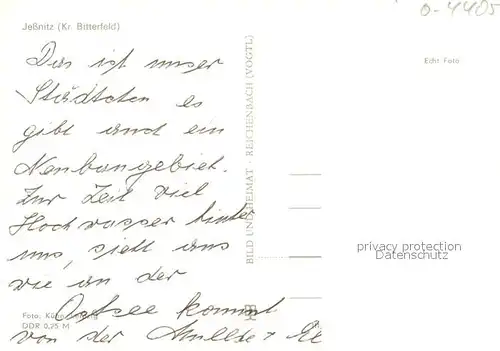 o-4405
Jeßnitz (Kr. Bitterfeld)
Das ist unser
Städtchen es
gibt auch ein
Neubaugebiet.
Zur Zeit viel
Hochwasser hinter
uns, sieht aus
wie an der
Ostsee kommt
von der Mulde +
Echt Foto
BILD UND HEIMAT · REICHENBACH (VOGTL)
privacy protection
Datenschutz
Foto:
DDR 0,25 M